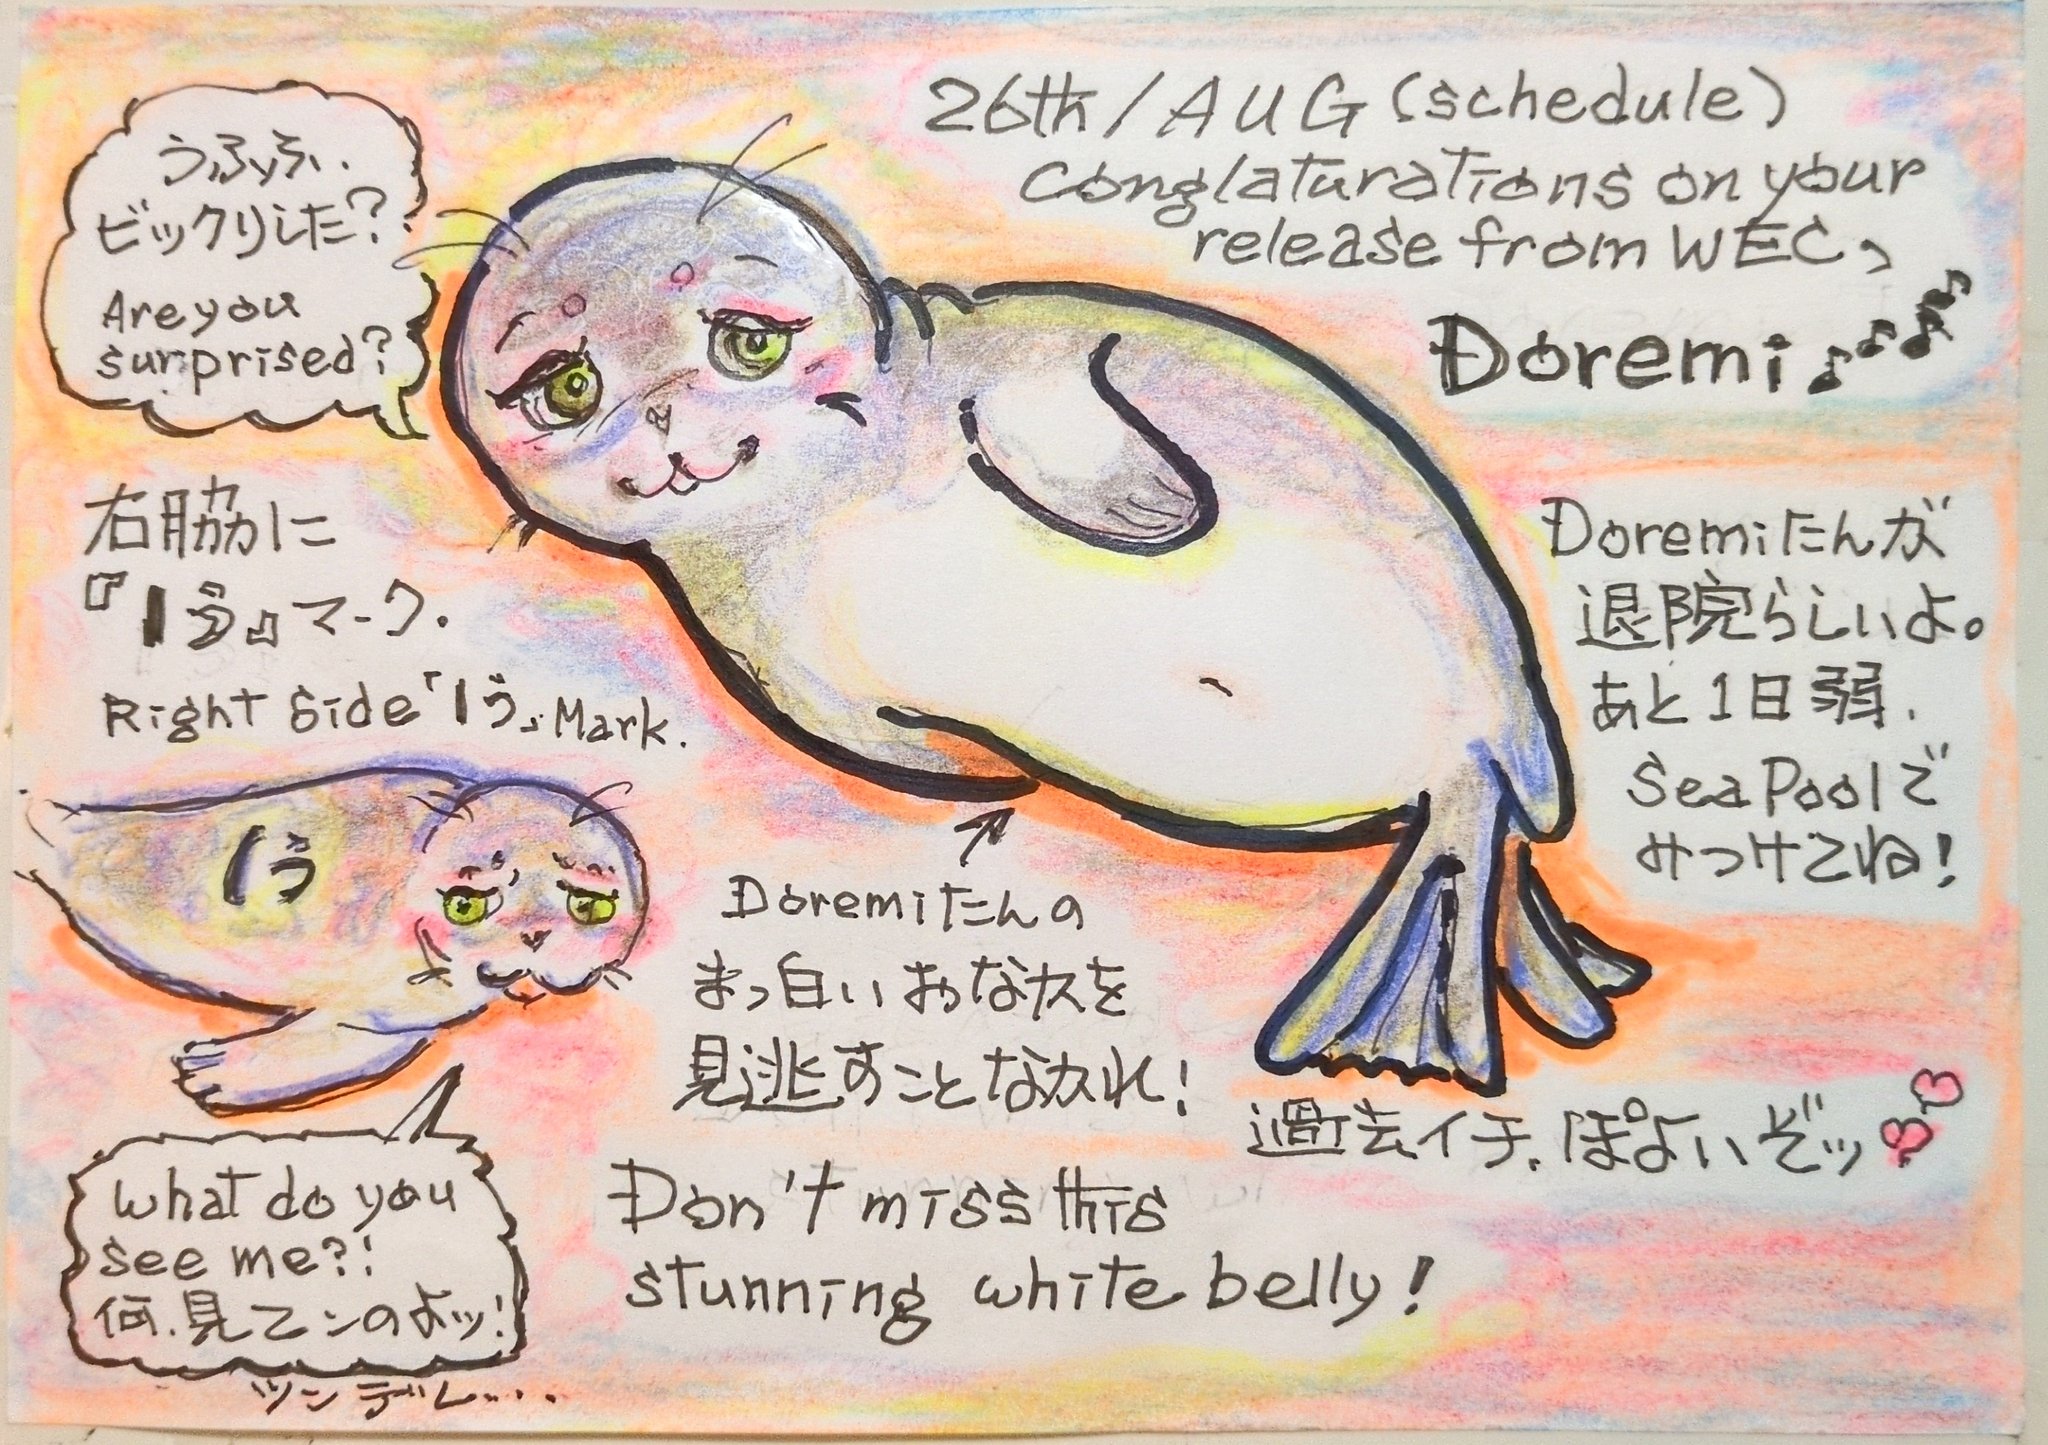 うふッふ、
ビックリした?
Are you
surprised?
26th / AUG (schedule)
conglaturations on your
release from WEC、
Doremi♪♪♪♪
右脇に
『1う』マーク.
Right side「1う」Mark.
Doremiたんが
退院らしいよ。
あと1日弱、
Sea Poolで
みつけてね!
1う
Doremiたんの
まっ白いおなカを
見逃すことなカれ!
過去イチ、ぽよいぞッ
Don't miss this
stunning white belly!
What do you
see me?!
何、見てンのよッ!
ツンデレ....